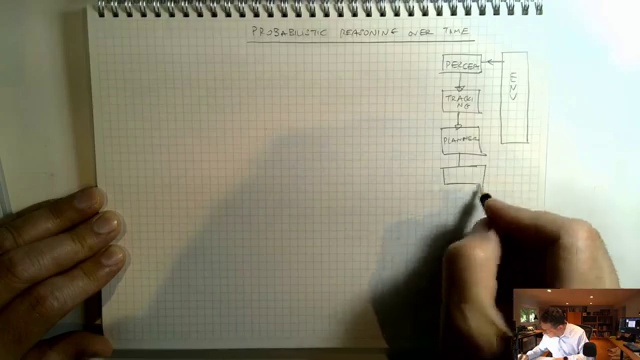 PROBABILISTIC REASONING OVER TIME
PERCEPT
ENV
TRACKI
NG
PLANNER